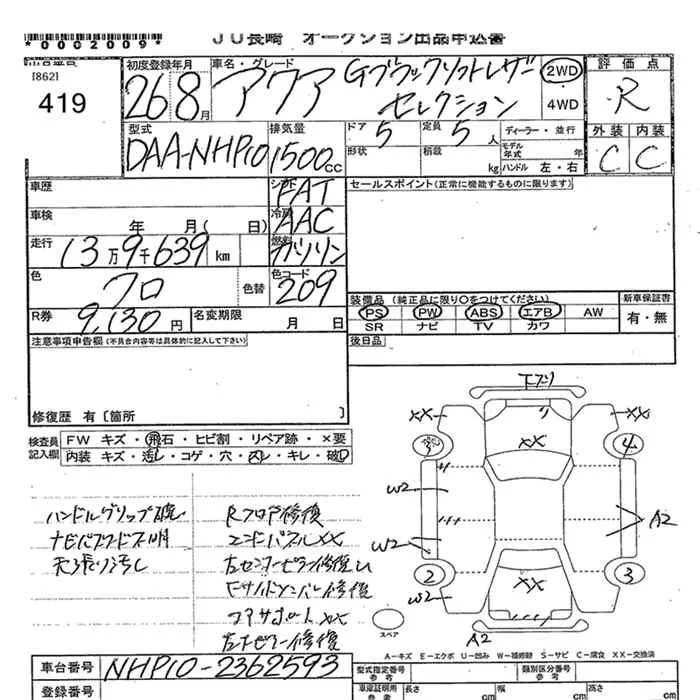 JU長崎 オークション出品申込書
*0002009*
出品番号
[862]
419
初度登録年月
26 8月
車名・グレード
アクア Gブラックソフトレザー
セレクション
2WD
4WD
評価点
R
型式
DAA-NHP10
排気量
1500cc
ドア 5
定員 5人
ディーラー・並行
形状
積載 kg
モデル年式 年
ハンドル 左・右
外装 内装
C C
車歴
シフト
FAT
セールスポイント(正常に機能するものに限ります)
車検 年 月( 日)
冷房
AAC
走行
13万9千639km
燃料
ガソリン
色
クロ
色替
色コード
209
R券
9,130円
名変期限 月 日
装備品(純正品に限り○をつけてください)
新車保証書
PS PW ABS エアB AW
有・無
SR ナビ TV カワ
注意事項申告欄(不具合内容等は具体的に記入して下さい)
後日品
修復歴 有〔箇所 〕
検査員記入欄
FW キズ・飛石・ヒビ割・リペア跡・×要
内装 キズ・汚レ・コゲ・穴・スレ・キレ・破レ
ハンドルグリップ破
天張り汚レ
Rフロア修復
エンドパネルXX
コアサポートXX
XX XX
XX
3 4
W2
W2
A2
2 3
W2
XX
A2
スペア
A-キズ E-エクボ U-凹み W-補修跡 S-サビ C-腐食 XX-交換済
車台番号
NHP10-2362593
登録番号
型式指定番号
参考
類別区分番号
参考
車庫証明用
参考
長さ cm
幅 cm
高さ cm